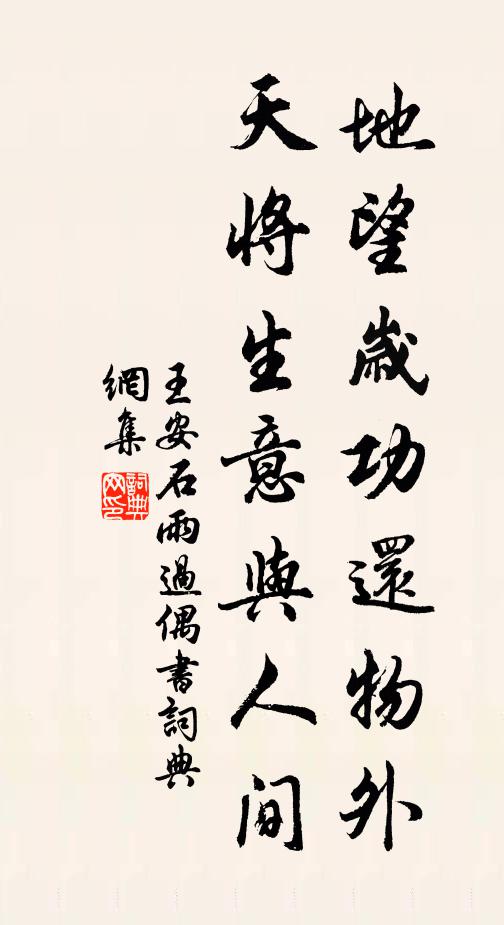 地望歲功還物外
天將生意與人間
王安石雨過偶書詞典
網集
詞典網印